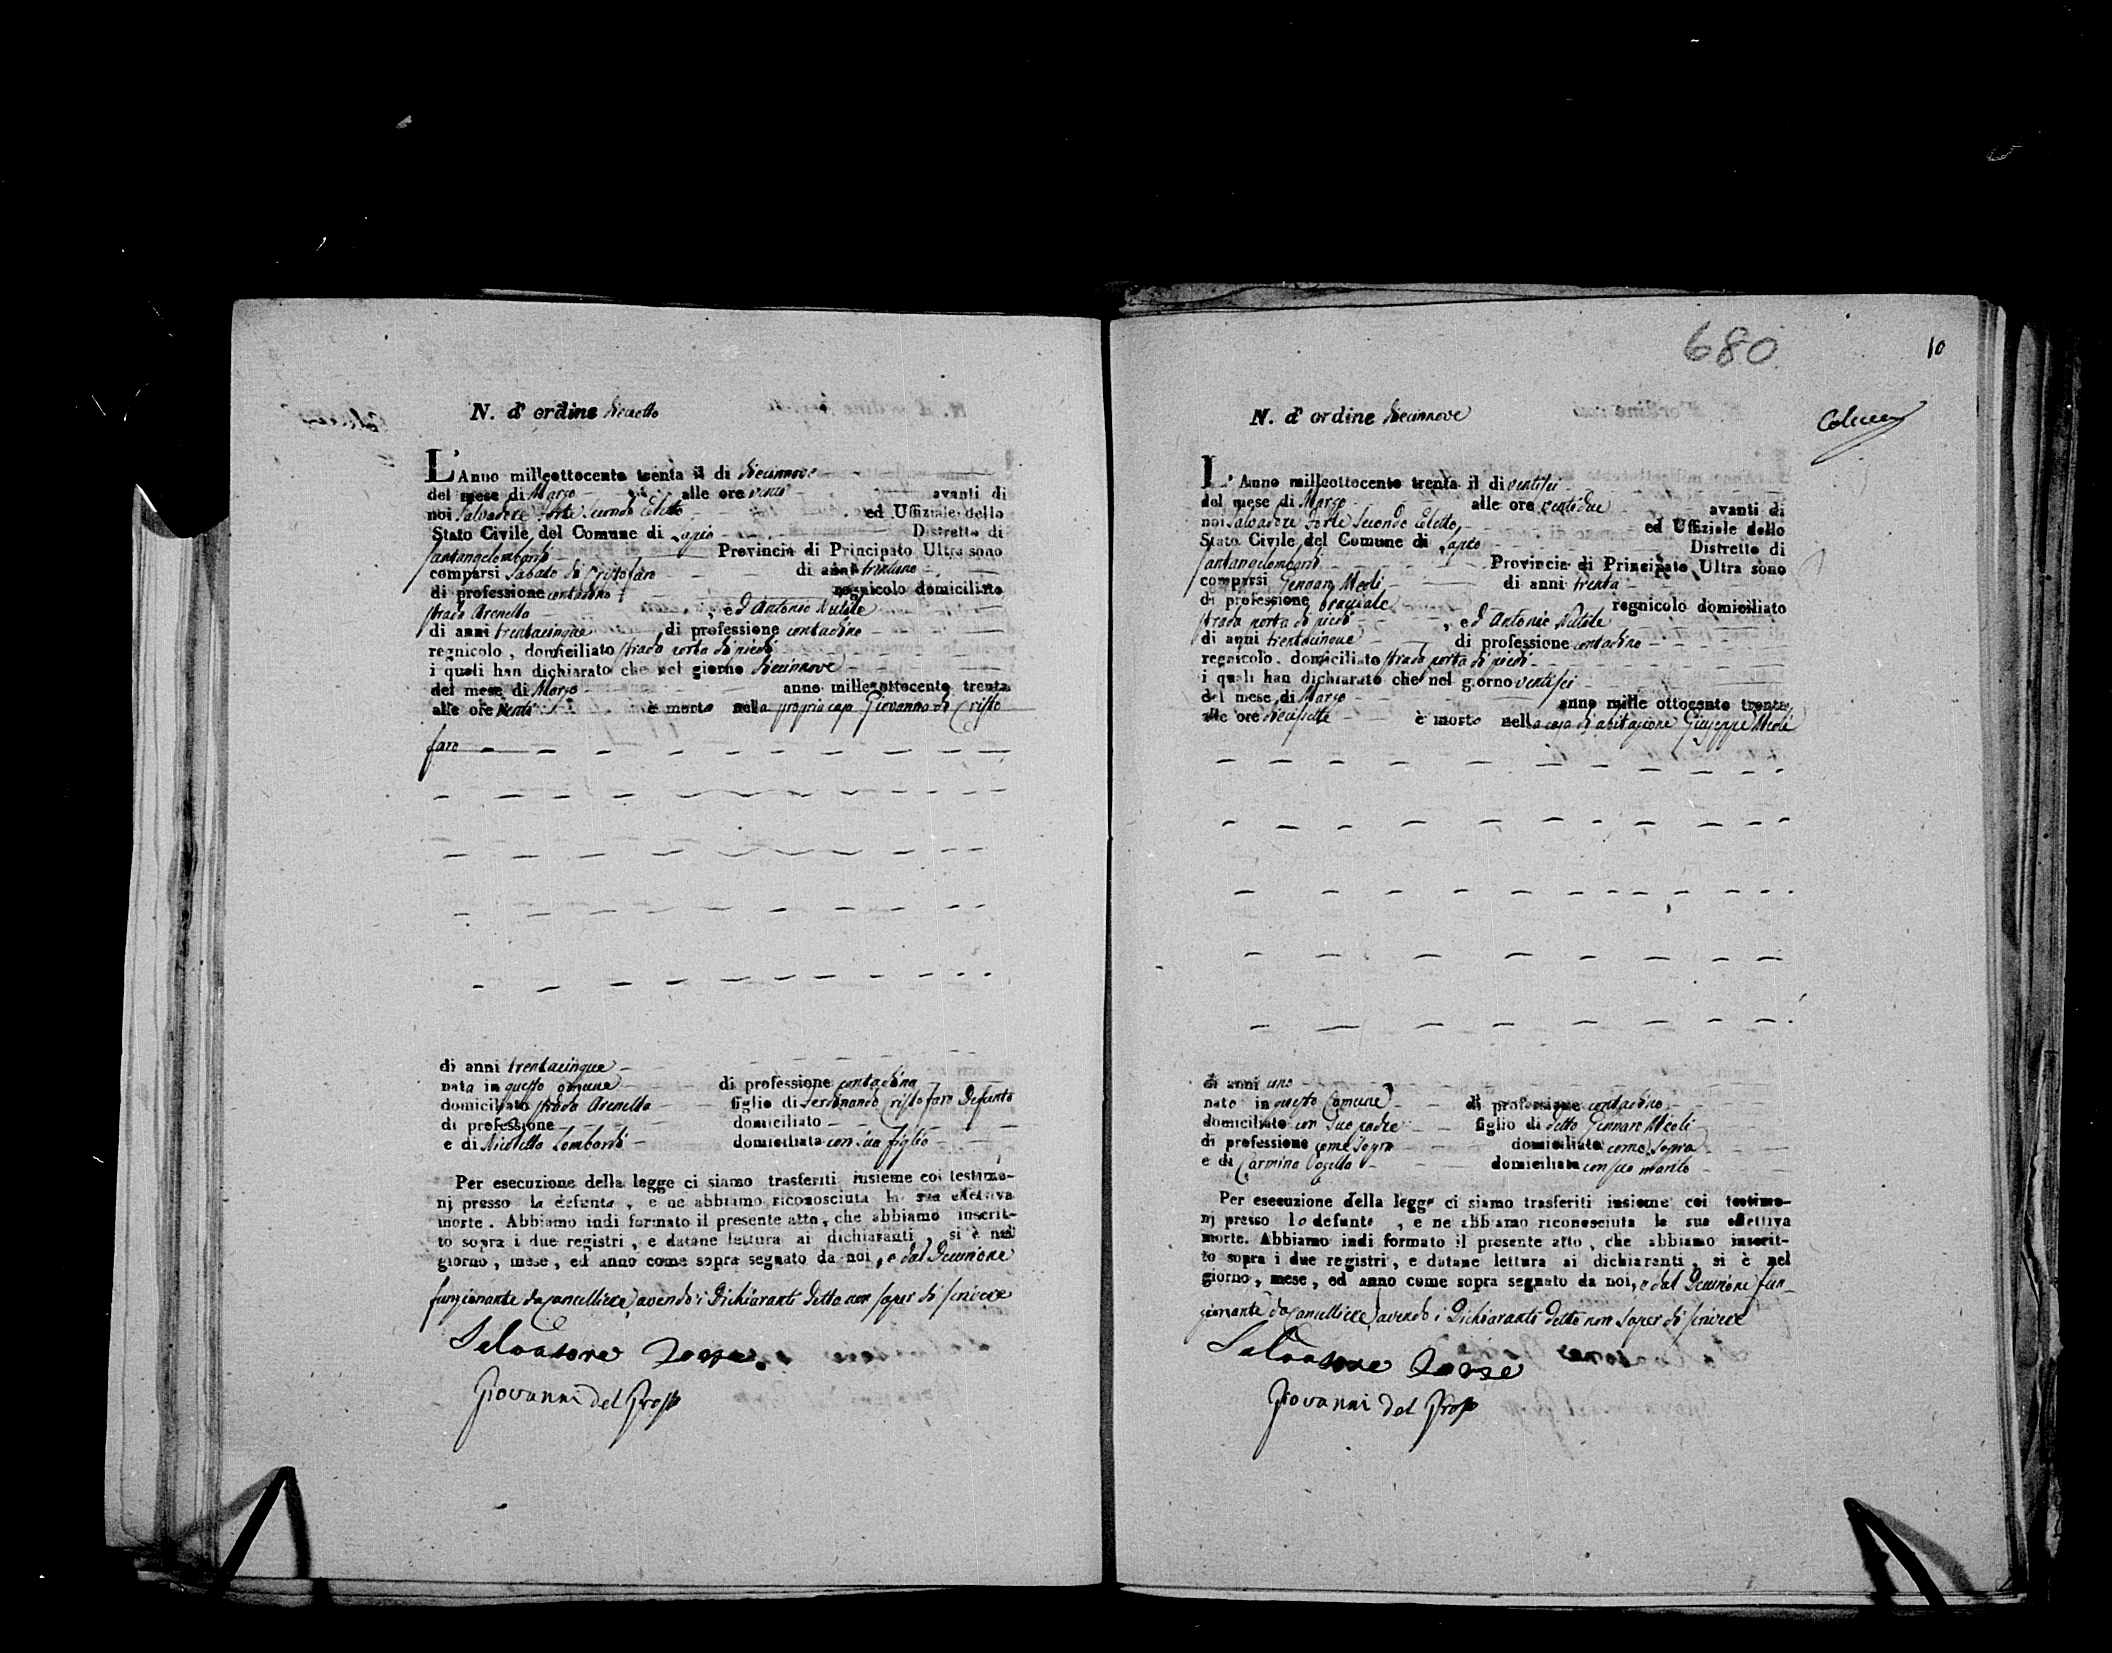 N. d' ordine dieciotto
L' Anno milleottocento trenta il di diecinnove
del mese di Marzo alle ore venti avanti di
noi Salvadore Forte Secondo Eletto ed Uffiziale dello
Stato Civile del Comune di Lapio Distretto di
Santangelombardi Provincia di Principato Ultra sono
comparsi Sabato di Cristofaro di anni trentuno
di professione contadino regnicolo domiciliato
strada Arenella , ed Antonio Nutile
di anni trentacinque di professione contadino
regnicolo , domiciliato strada porta di piedi
i quali han dichiarato che nel giorno diecinnove
del mese di Marzo anno milleottocento trenta
alle ore venti è morta nella propria casa Giovanna di Cristo
faro
di anni trentacinque
nata in questo comune di professione contadina
domiciliata strada Arenella figlia di Ferdinando Cristofaro defunto
di professione domiciliato
e di Nicoletta Lombardi domiciliata con sua figlia
Per esecuzione della legge ci siamo trasferiti insieme coi testimo-
nj presso la defunta , e ne abbiamo riconosciuta la sua effettiva
morte . Abbiamo indi formato il presente atto , che abbiamo inscrit-
to sopra i due registri , e datane lettura ai dichiaranti , si è nel
giorno , mese , ed anno come sopra segnato da noi , e dal Decurione
funzionante da Cancelliere, avendo i Dichiaranti detto non saper di scrivere
Salvatore Forte
Giovanni del Grosso
680
10
N. d' ordine diecinnove
L' Anno milleottocento trenta il di ventisei
del mese di Marzo alle ore ventidue avanti di
noi Salvadore Forte Secondo Eletto, ed Uffiziale dello
Stato Civile del Comune di Lapio Distretto di
Santangelombardi Provincia di Principato Ultra sono
comparsi Gennaro Meoli di anni trenta
di professione bracciale regnicolo domiciliato
strada porta di piedi , ed Antonio Nutile
di anni trentacinque di professione contadino
regnicolo . domiciliato strada porta di piedi
i quali han dichiarato che nel giorno ventisei
del mese di Marzo anno mille ottocento trenta
alle ore diecisette è morto nella casa di abitazione Giuseppe Meoli
di anni uno
nato in questo Comune di professione contadino
domiciliato con suo padre figlio di detto Gennaro Meoli
di professione come sopra domiciliato come sopra
e di Carmina domiciliata con suo marito
Per esecuzione della legge ci siamo trasferiti insieme coi testimo-
nj presso lo defunto , e ne abbiamo riconosciuta la sua effettiva
morte. Abbiamo indi formato il presente atto , che abbiamo inscrit-
to sopra i due registri , e datane lettura ai dichiaranti , si è nel
giorno , mese , ed anno come sopra segnato da noi, e dal Decurione fun-
zionante da Cancelliere, avendo i Dichiaranti detto non saper di scrivere
Salvatore Forte
Giovanni del Grosso